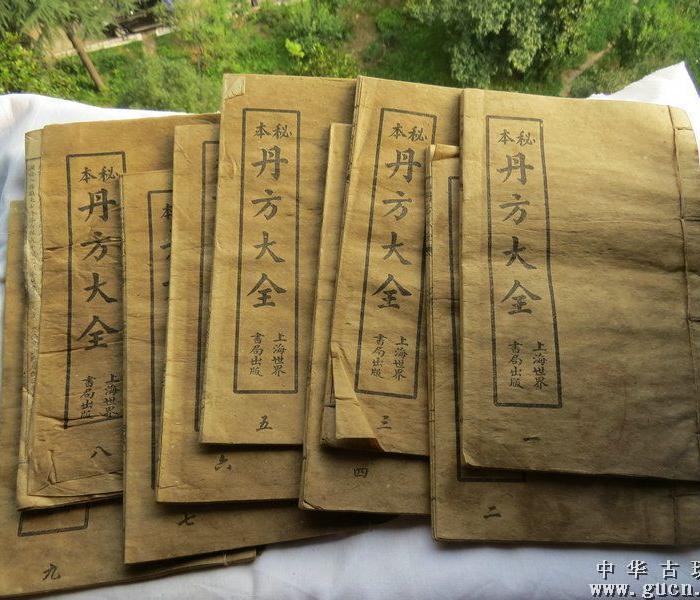 秘本
丹方大全
上海世界
書局出版
一
二
秘本
丹方大全
上海世界
書局出版
三
四
秘本
丹方大全
上海世界
書局出版
五
六
七
秘本
丹方大全
上海世界
書局出版
八
九
中华古玩
www.gucn.